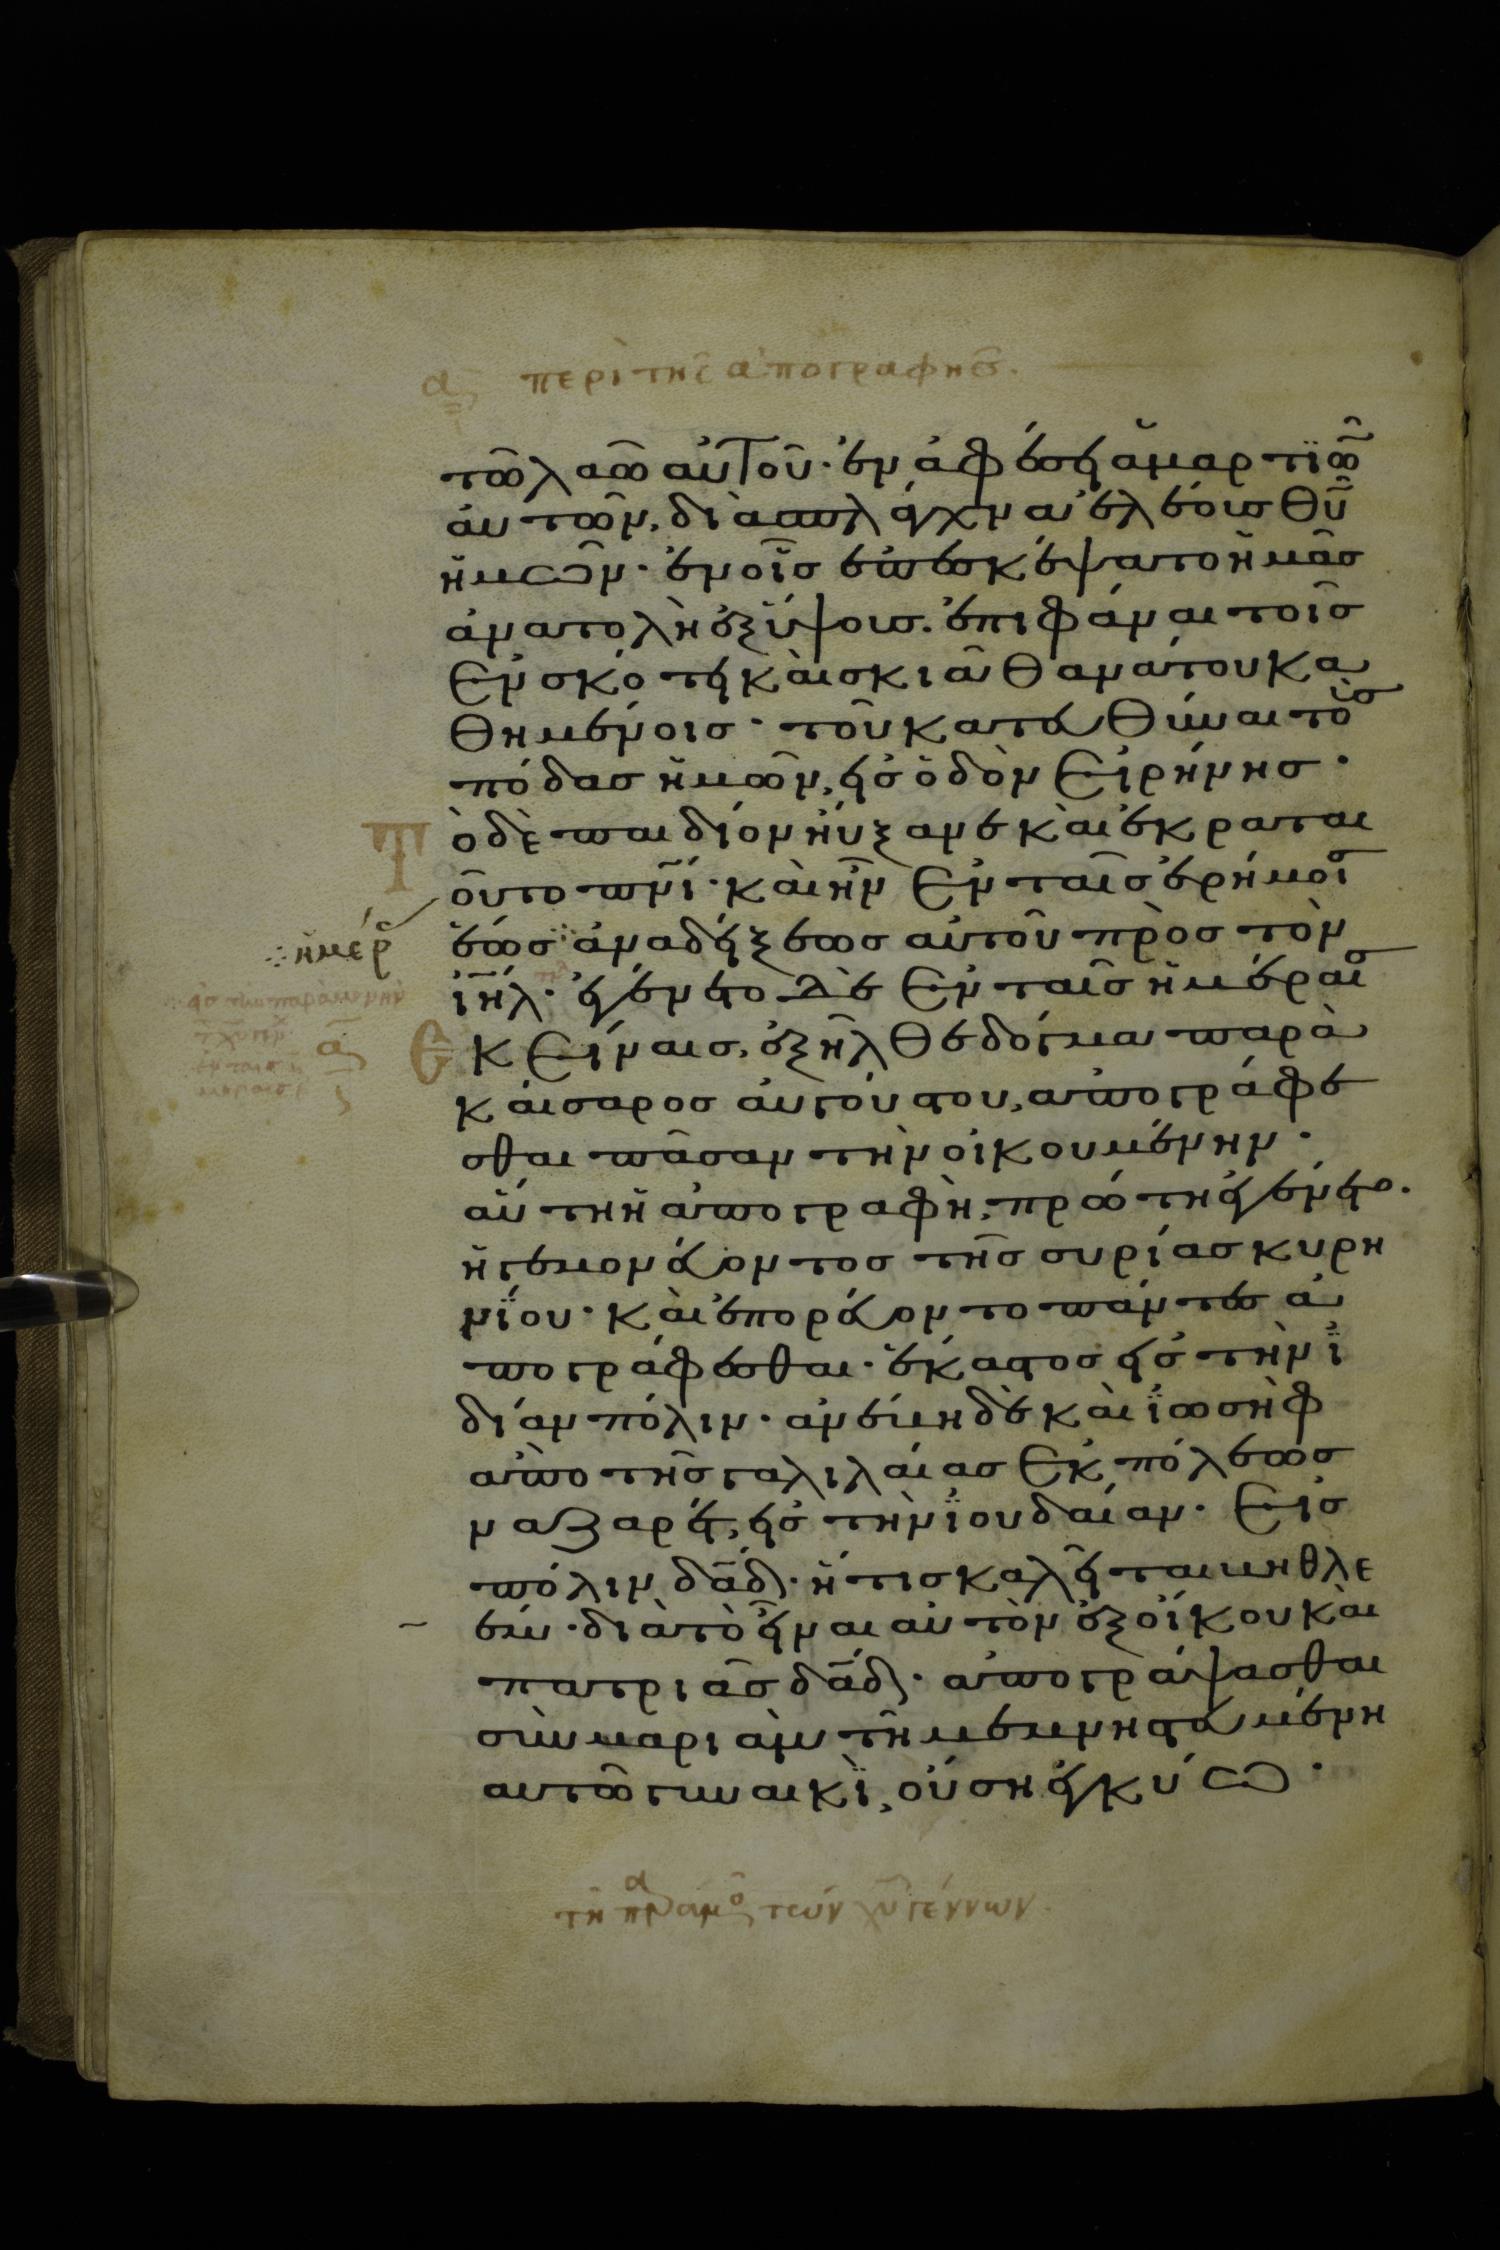 α περὶ τῆς ἀπογραφῆς.
τῶ λαῶ αὐτοῦ· ἐν ἀφέσει ἁμαρτϊῶ
αὐτῶν, διὰ σπλάγχνα ἐλέους θῡ
ἡμῶν· ἐν οἷς ἐπεσκέψατο ἡμᾶσ
ἀνατολὴ ἐξ ὕψους. ἐπιφάναι τοῖσ
ἐν σκότει καὶ σκιᾶ θανάτου κα
θημένοις· τοῦ κατευθύναι τοὺσ
πόδας ἡμῶν, εἰσ ὁδὸν εἰρήνησ·
Τὸ δὲ παιδίον ηὔξανε καὶ ἐκραται
οῦτο πν̄ῑ· καὶ ἦν ἐν ταῖσ ἐρήμοισ
ἕως ἀναδείξεωσ αὐτοῦ πρὸσ τὸν
ἡμέρ
ῑη̄λ· ἐγένετο δὲ ἐν ταῖσ ἡμέραισ
α Ἐκείναισ, ἐξῆλθε δόγμα παρὰ
καίσαροσ αὐγούστου, ἀπογράφε
σθαι πᾶσαν τὴν οἰκουμένην·
αὕτη ἡ ἀπογραφὴ, πρώτη ἐγένετο.
ἡγεμονεύοντοσ τῆσ συρίασ κυρη
νΐου· καὶ ἐπορεύοντο πάντεσ ἀ
πογράφεσθαι· ἕκαστοσ εἰσ τὴν ϊ
δίαν πόλιν· ἀνέβη δὲ καὶ ϊωσὴφ
ἀπὸ τῆσ γαλιλαίασ ἐκ πόλεωσ
ναζαρέτ, εἰσ τὴν ϊουδαίαν· εἰσ
πόλιν δᾱδ· ἥτισ καλεῖται βηθλε
έμ· διὰ τὸ εἶναι αὐτὸν ἐξ οἴκου καὶ
πατριᾶσ δᾱδ· ἀπογράψασθαι
σὺν μαριὰμ τῆ μεμνηστευμένη
αὐτῶ γυναικὶ, οὔσῃ ἐγκύω·
τῶν χῡ γέννων.